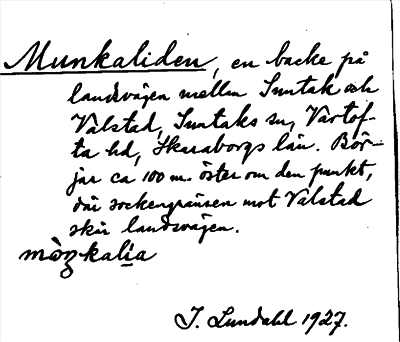 Munkaliden, en backe på
landsvägen mellan Suntak och
Valstad, Suntaks sn, Vartof-
ta hd, Skaraborgs län. Bör-
jar ca 100 m. öster om den punkt,
där sockengränsen mot Valstad
skär landsvägen.
mòŋkalia
J. Lundahl 1927.